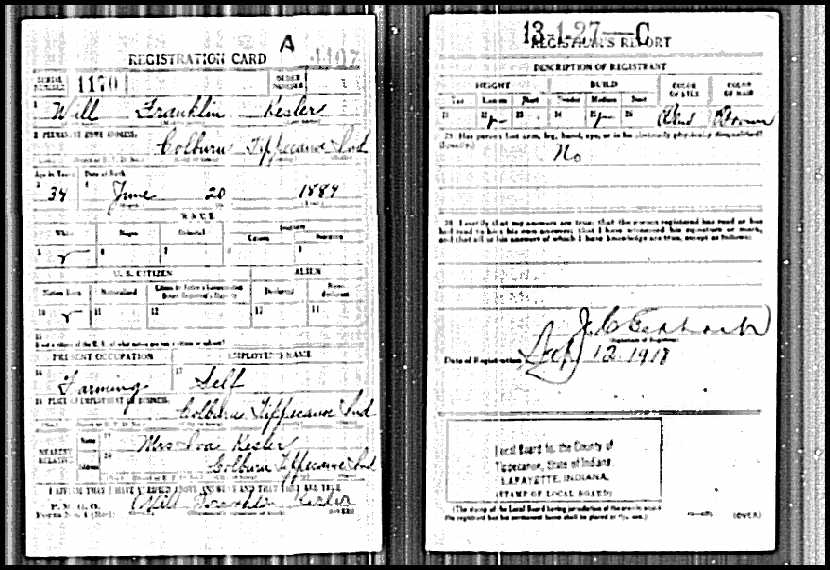 REGISTRATION CARD
A
SERIAL NUMBER 1170
ORDER NUMBER
1 Will Franklin Kesler
2 PERMANENT HOME ADDRESS:
Colburn Tippecanoe Ind
Age in Years
Date of Birth
3 34
4 June 20 1884
RACE
White
Negro
Oriental
Indian
Citizen
Noncitizen
5
6
7
8
9
U. S. CITIZEN
ALIEN
Native Born
Naturalized
Citizen by Father's Naturalization Before Registrant's Majority
Declarant
Non-declarant
10
11
12
13
15
If not a citizen of the U. S., of what nation are you a citizen or subject?
PRESENT OCCUPATION
EMPLOYER'S NAME
16 Farming
17 Self
18 PLACE OF EMPLOYMENT OR BUSINESS:
Colburn Tippecanoe Ind
NEAREST RELATIVE
Name
Mrs Iva Kesler
Address
Colburn Tippecanoe Ind
I AFFIRM THAT I HAVE VERIFIED ABOVE ANSWERS AND THAT THEY ARE TRUE
P. M. G. O.
Form No. 1 (Red)
Will Franklin Kesler
(OVER)
13-1-27-C
REGISTRAR'S REPORT
DESCRIPTION OF REGISTRANT
HEIGHT
BUILD
COLOR OF EYES
COLOR OF HAIR
Tall
Medium
Short
Slender
Medium
Stout
21
22
23
24
25
26
Brown
29 Has person lost arm, leg, hand, eye, or is he obviously physically disqualified?
(Specify.)
No
30 I certify that my answers are true; that the person registered has read or has
had read to him his own answers; that I have witnessed his signature or mark,
and that all of his answers of which I have knowledge are true, except as follows:
(Signature of Registrar)
Date of Registration
Sept 12 1918
Local Board for the County of
Tippecanoe, State of Indiana
LAFAYETTE, INDIANA,
(STAMP OF LOCAL BOARD)
(The stamp of the Local Board having jurisdiction of the area in which
the registrant has his permanent home shall be placed in this box.)
(OVER)